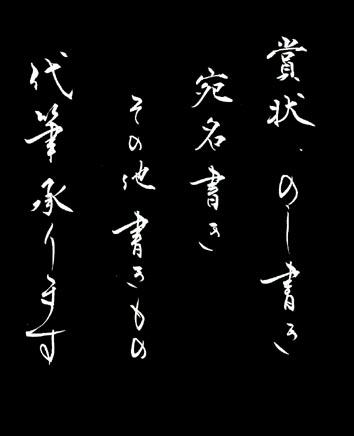 賞状、のし書き
宛名書き
その他書きもの
代筆承ります